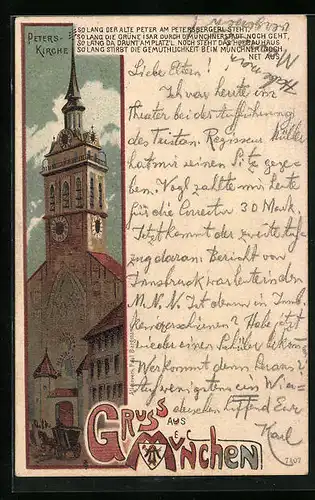 PETERS-
KIRCHE
SO LANG DER ALTE PETER AM PETERSBERGERL STEHT,
SO LANG DIE GRÜNE ISAR DURCH D'MÜNCHNERSTADT NOCH GEHT,
SO LANG DA DRUNT AM PLATZ'L NOCH STEHT DAS HOFBRÄUHAUS
SO LANG STIRBT DIE GEMÜTHLICHKEIT BEIM MÜNCHNER NOCH
NET AUS.
Liebe Eltern!
Ich war heute im
Theater bei der Aufführung
des Tristan. Regisseur Müller
hat mir seinen Sitz gege-
ben. Vogl zahlte mir heute
für die Correctur 30 Mark.
Jetzt kommt der zweite Auf-
zug daran. Bericht von
Innsbruck war heute in den
M.N.N. Ist ebenso in Inns-
bruck erschienen? Habe jetzt
wieder einen Schüler bekom-
Wer kommt denn daran?
Auf wenigstens ein Wie-
dersehen hoffend Euer
Karl
GRUSS AUS
MÜNCHEN
7407